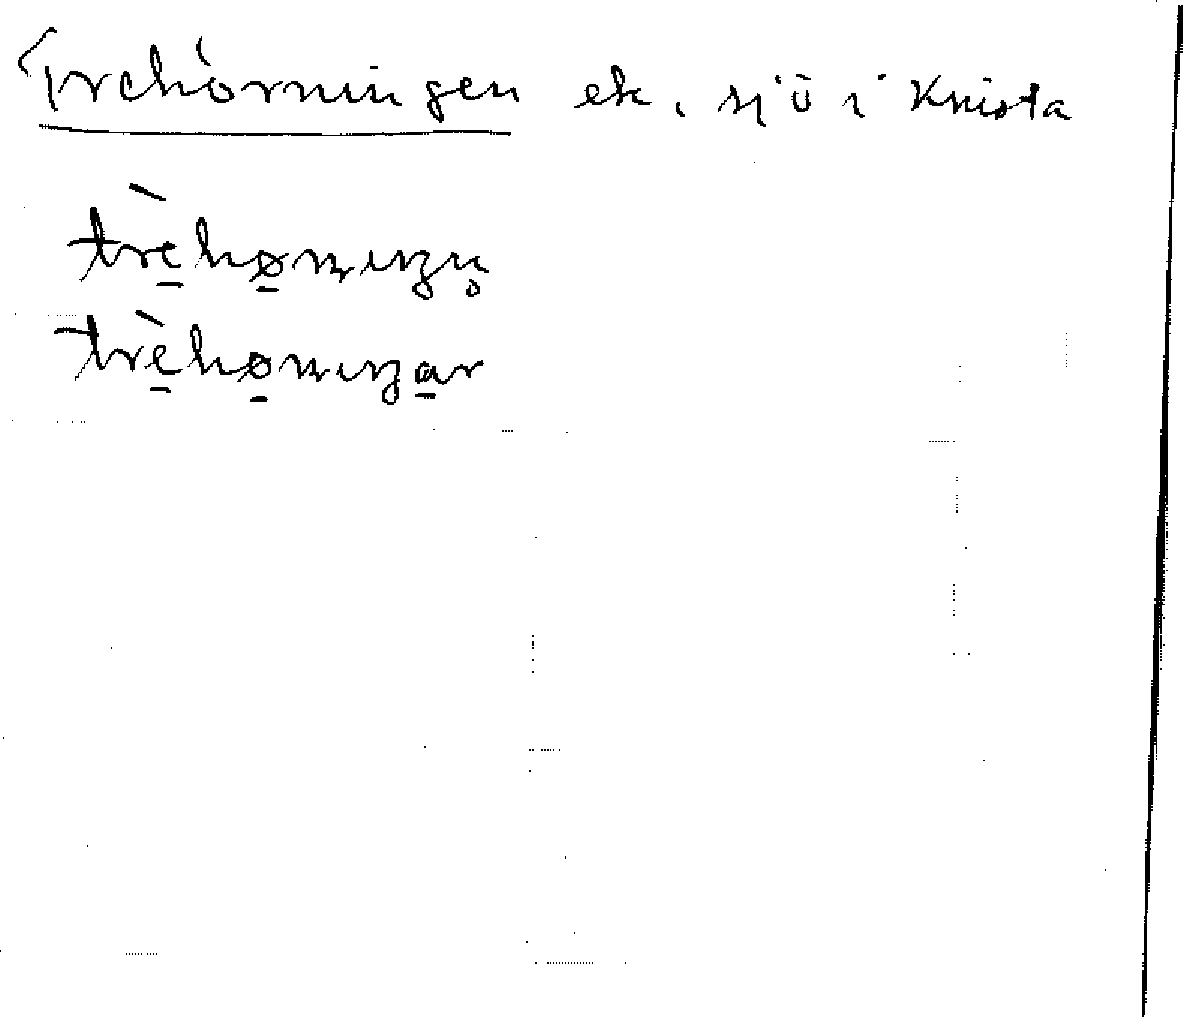 Trehörningen ek, sjö i Knista
trèhø̱rnɪŋən
trèhø̱rnɪŋa̱r